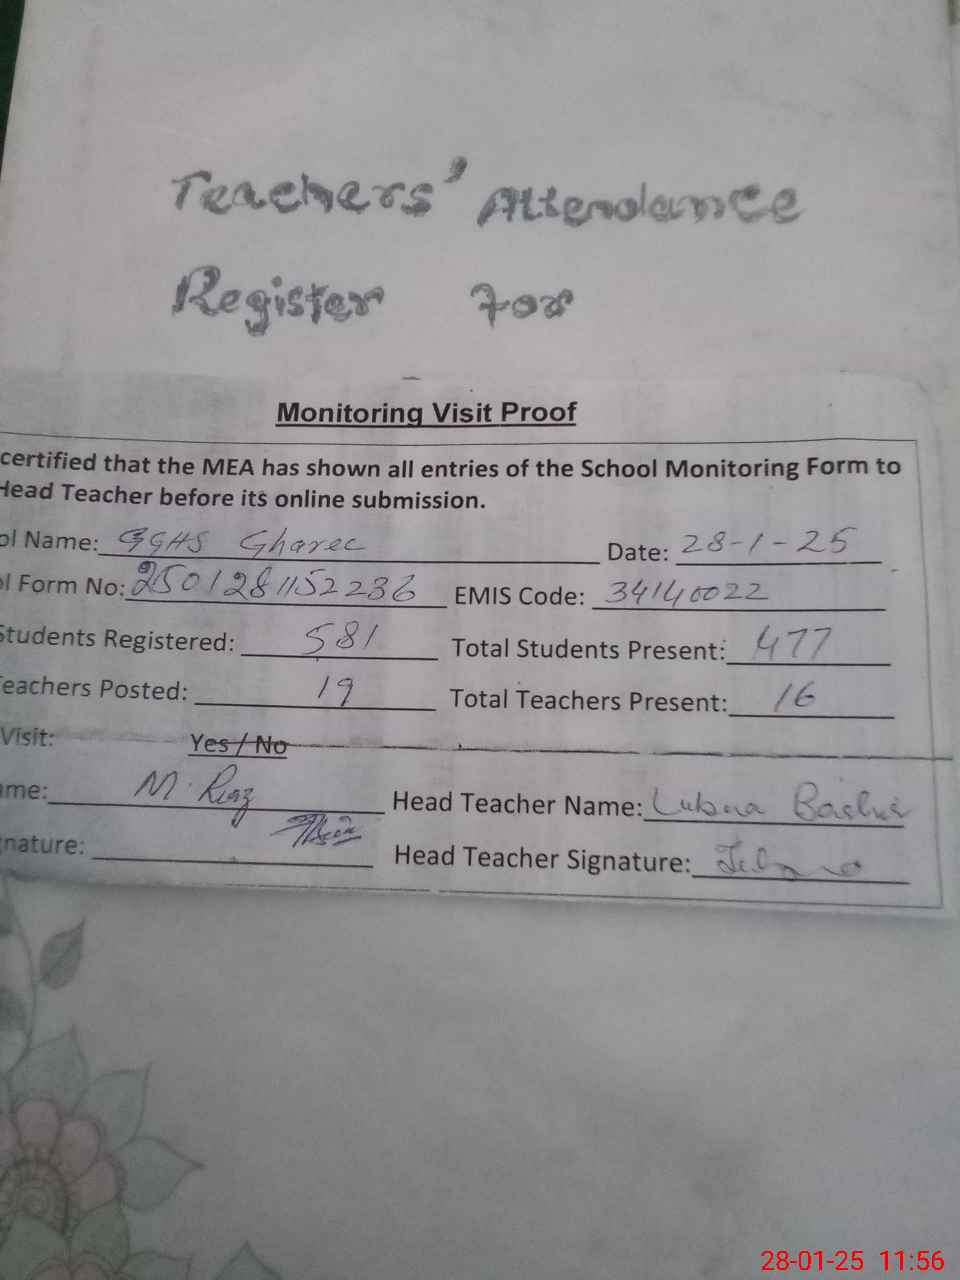 Teachers' Attendance
Register For
Monitoring Visit Proof
certified that the MEA has shown all entries of the School Monitoring Form to
Head Teacher before its online submission.
ol Name: GGHS Gharec Date: 28-1-25
l Form No: 2501281152236 EMIS Code: 34140022
Students Registered: 581 Total Students Present: 477
eachers Posted: 19 Total Teachers Present: 16
Visit: Yes / No
ame: M. Riaz Head Teacher Name: Lubna Bashir
nature: Head Teacher Signature:
28-01-25 11:56